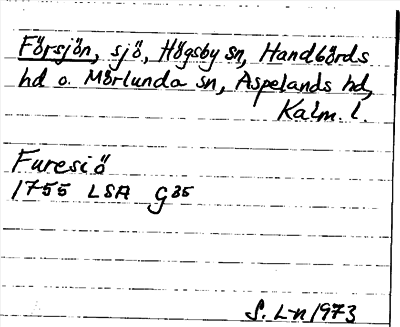 Försjön, sjö, Högsby sn, Handbörds
hd o. Mörlunda sn, Aspelands hd,
Kalm. l.
Furesiö
1755 LSA G35
S. L-n 1973